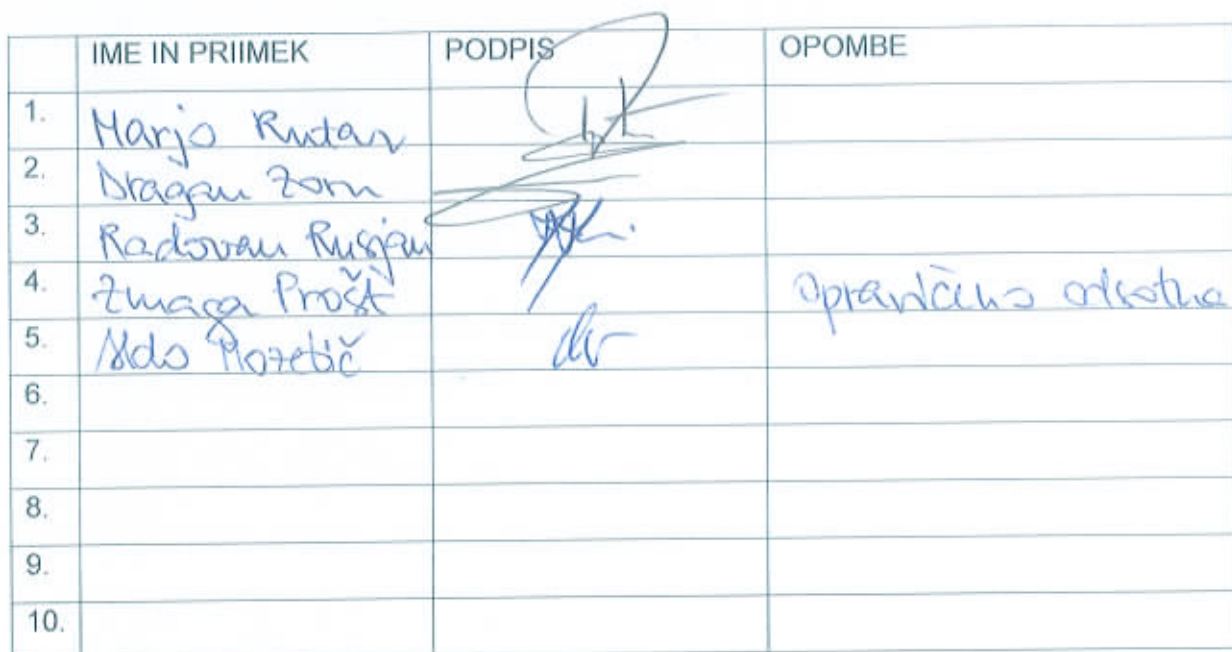 IME IN PRIIMEK PODPIS OPOMBE
1. Marjo Rutar
2. Dragan Zorn
3. Radovan Rusjan
4. Zmaga Prošt Opravičeno odsotna
5. Aldo Mozetič
6.
7.
8.
9.
10.